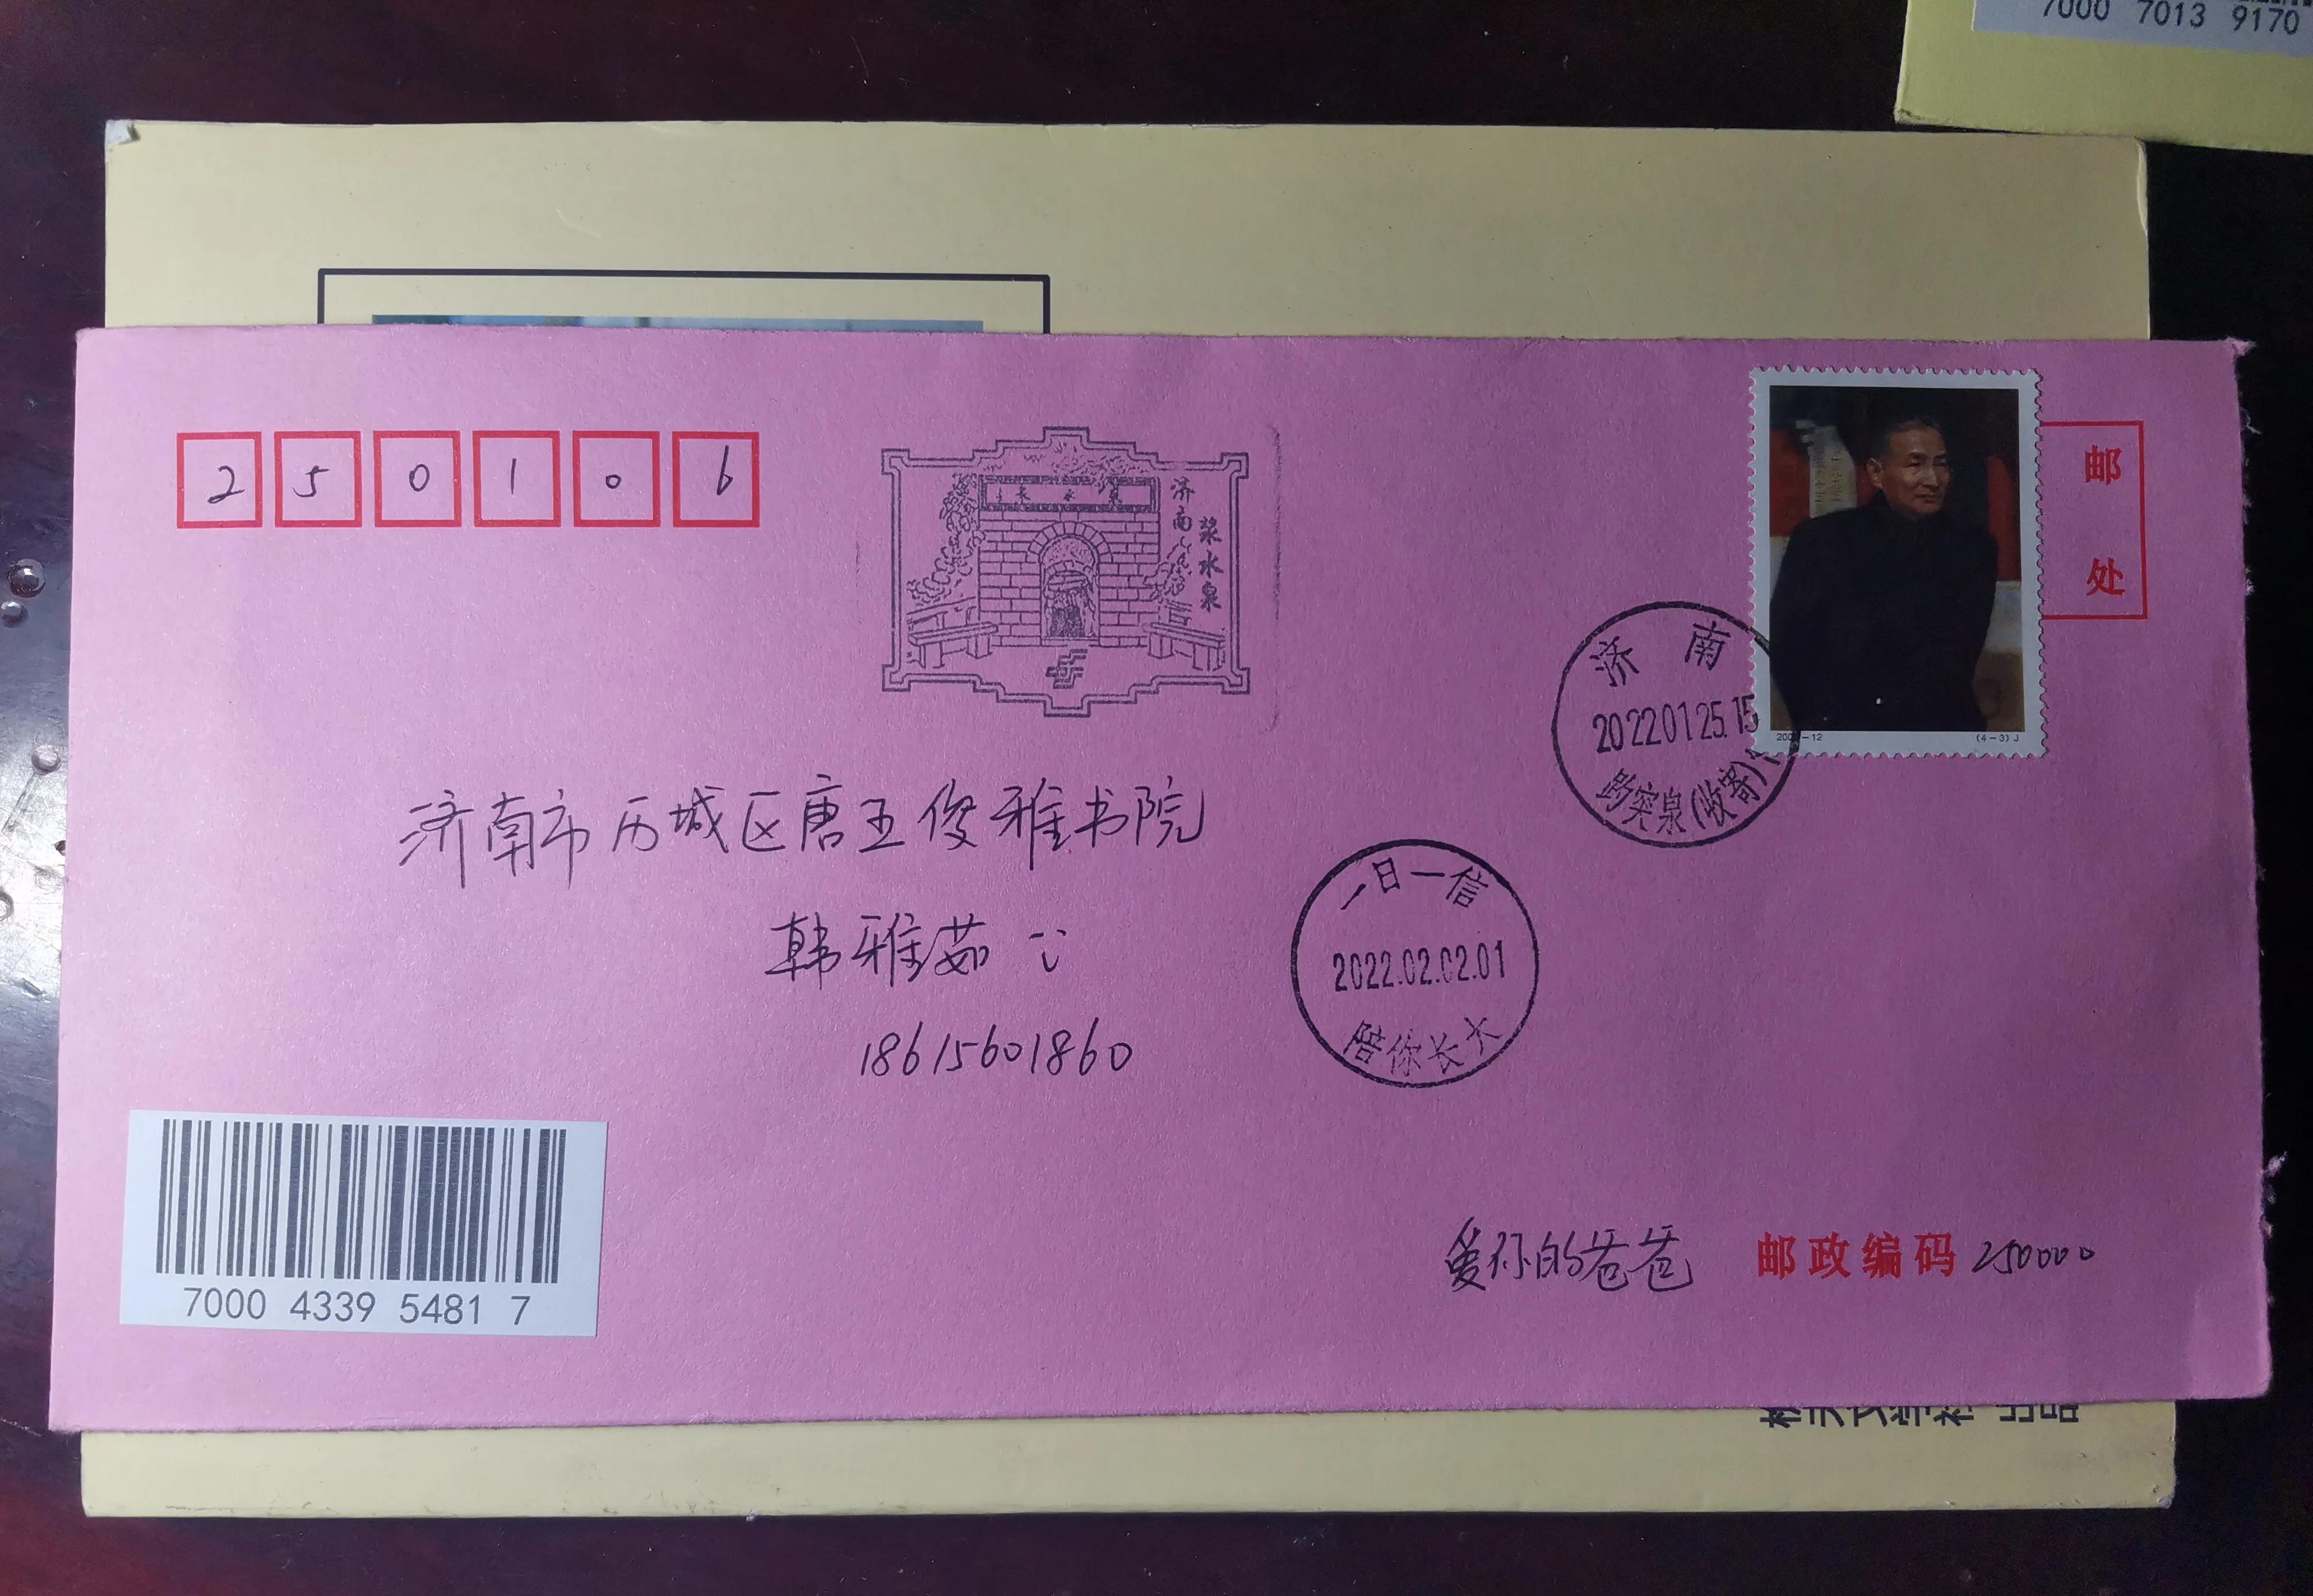 7000 7013 9170
250106
济南
浆水泉
邮
处
济南
2022012515
趵突泉(收寄)
(4-3)J
济南市历城区唐王俊雅书院
韩雅茹
18615601860
一日一信
2022.02.02.01
陪你长大
7000 4339 5481 7
爱你的爸爸 邮政编码 250000